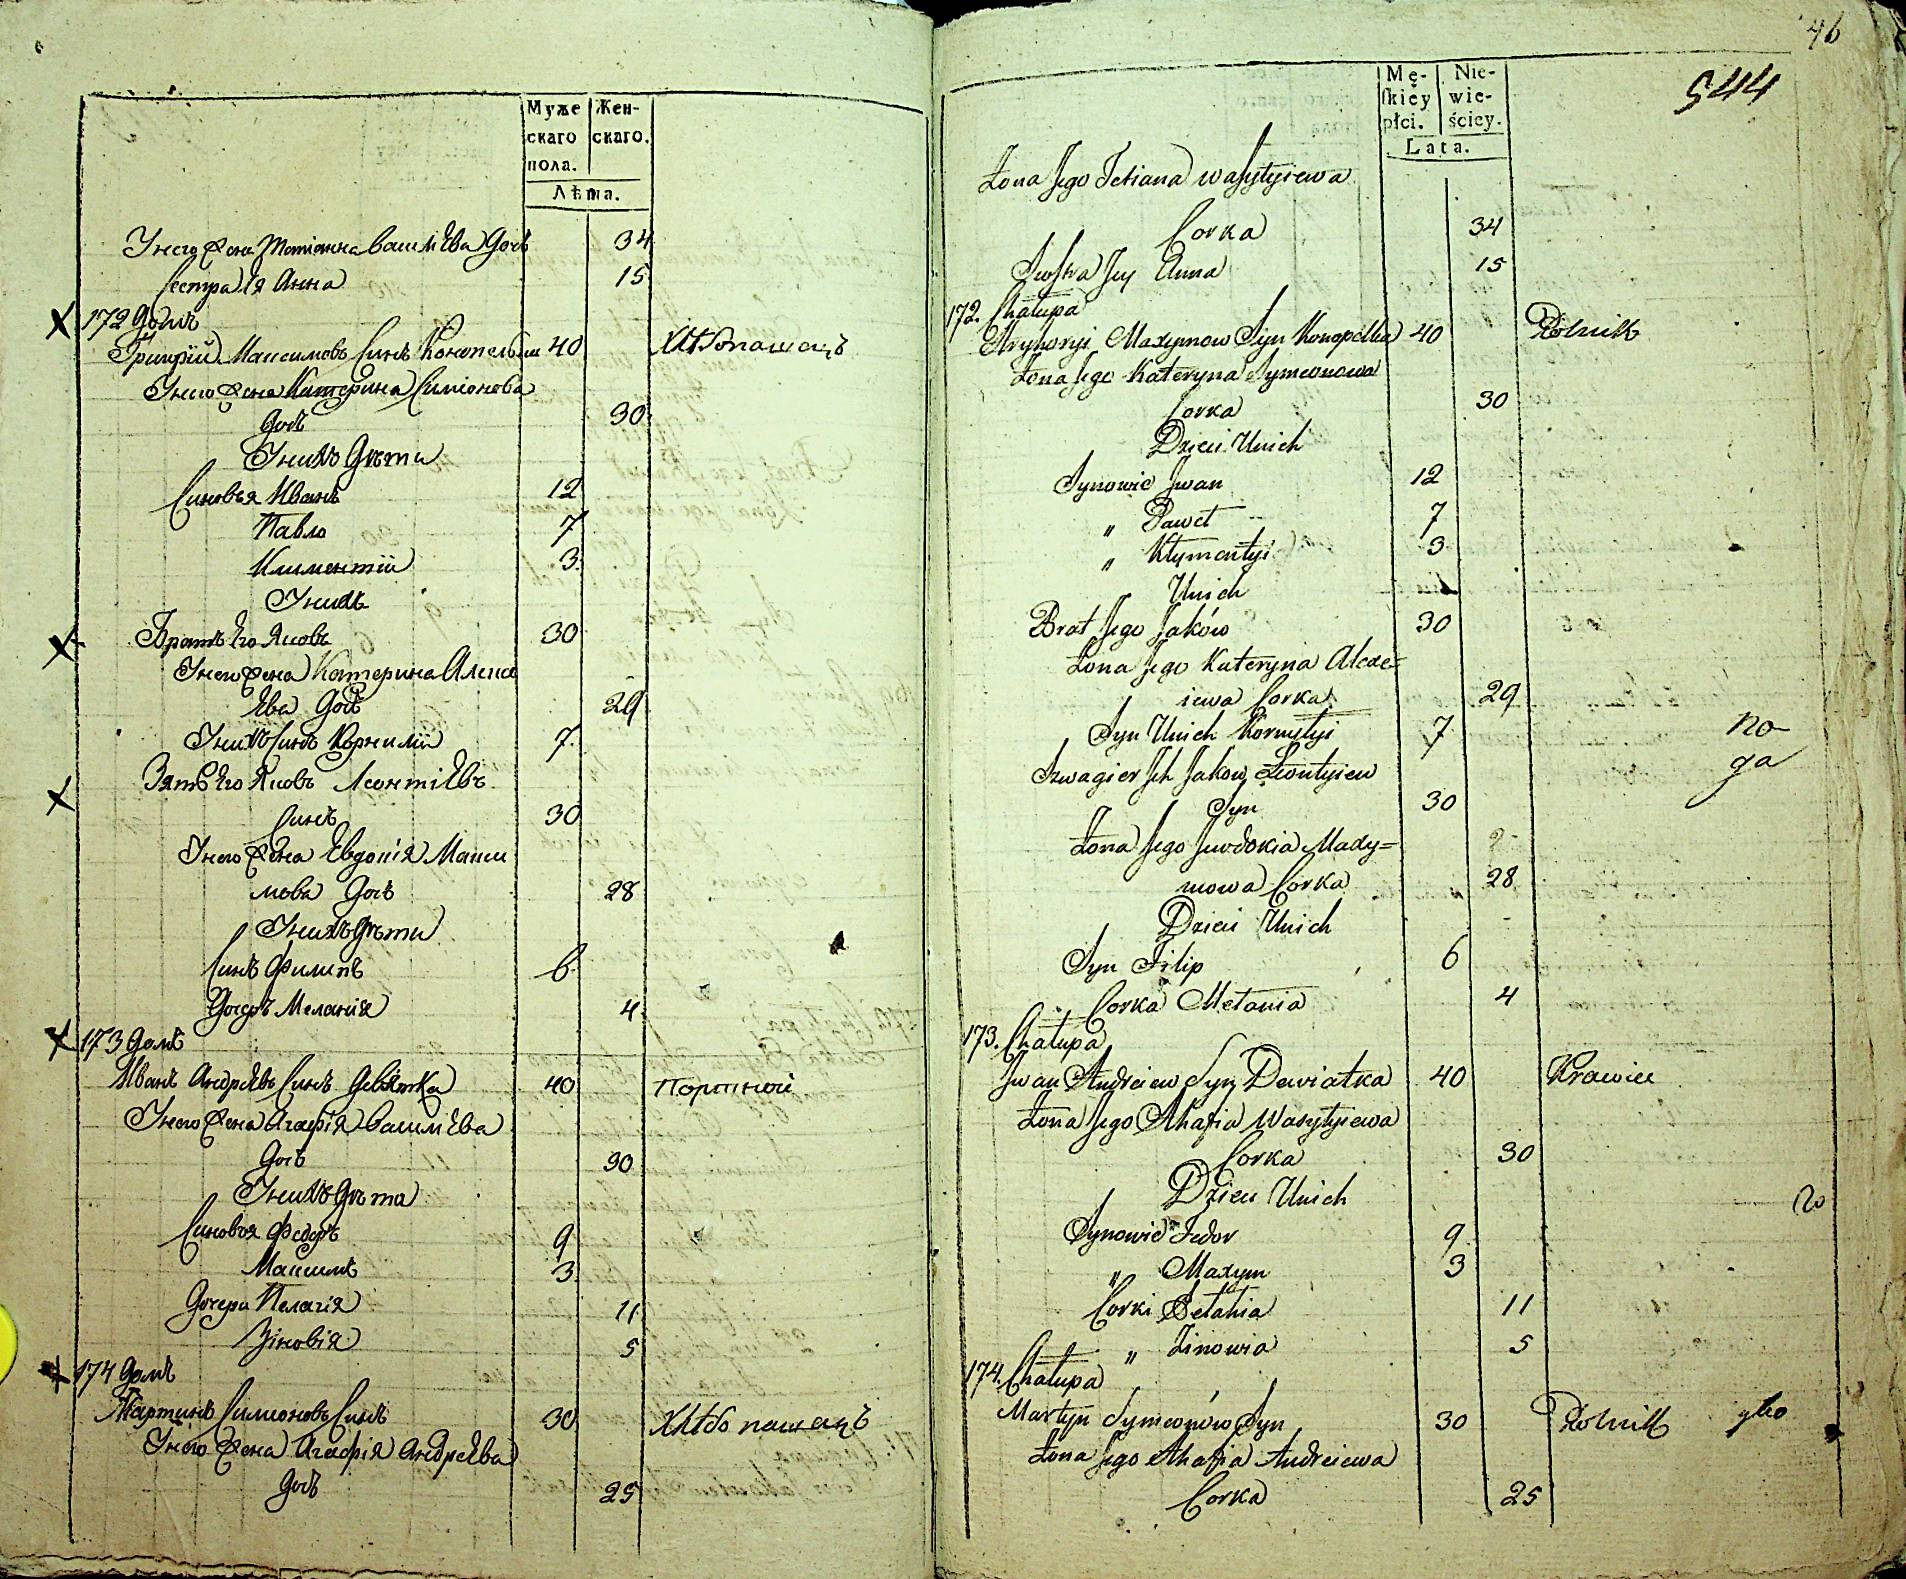 Муже
скаго
пола.
Жен-
скаго.
Лѣта.
Унего жена Татіанна Василѣва Дочь 34
Сестра Ія Анна 15
172 Домъ
Григрій Максимовъ Синъ Конопелька 40 Хлѣбопашецъ
Унего жена Катерина Симіонова
Дочь 30
Унихъ Дѣти
Синовья Иванъ 12
Павло 7
Климентій 3
Унихъ
Братъ Его Яковъ 30
Унего жена Катерина Алекс
Ева Дочь 29
Унихъ Синъ Корнилій 7
Зять Его Яковъ Леонтіевъ
Синъ 30
Унего жена Евдокія Макси
мова Дочь 28
Унихъ Дѣти
Синъ Филипъ 6
Дочерь Меланія 4
173 Домъ
Иванъ Андрѣевъ Синъ Девятка 40 Портной
Унего жена Агафія Василѣва
Дочь 30
Унихъ Дѣти
Синовья Федоръ 9
Максимъ 3
Дочери Пелагія 11
Зіновія 5
174 Домъ
Мартинъ Симионовъ Синъ 30 Хлѣбопашецъ
Унего жена Агафія Андрѣева
Дочь 25
46
544
Mę-
skiéy
płci.
Nie-
wie-
ściey.
Lata.
Żona Jego Tetiana Wasyłyiewa
Corka 34
Siostra Jey Anna 15
172. Chałupa
Hryhoryi Maxymow Syn Konopelka 40 Rolnik
Żona Jego Kateryna Symeonowa
Corka 30
Dzieci Unich
Synowie Jwan 12
" Paweł 7
" Kłymentyi 3
Unich
Brat Jego Jaków 30
Żona Jego Kateryna Alexe=
iewa Corka 29
Syn Unich Kornyłyi 7
Szwagier Jch Jakow Leontyiew
Syn 30
Żona Jego Jewdokia Maxy=
mowa Corka 28
Dzieci Unich
Syn Filip 6
Corka Mełania 4
173. Chałupa
Jwan Andreiew Syn Dewiatka 40 Krawiec
Żona Jego Ahafia Wasyłyiewa
Corka 30
Dzieci Unich
Synowie Fedor 9
" Maxym 3
Corki Pełahia 11
" Zinowia 5
174. Chałupa
Martyn Symeonów Syn 30 Rolnik
Żona Jego Ahafia Andreiewa
Corka 25